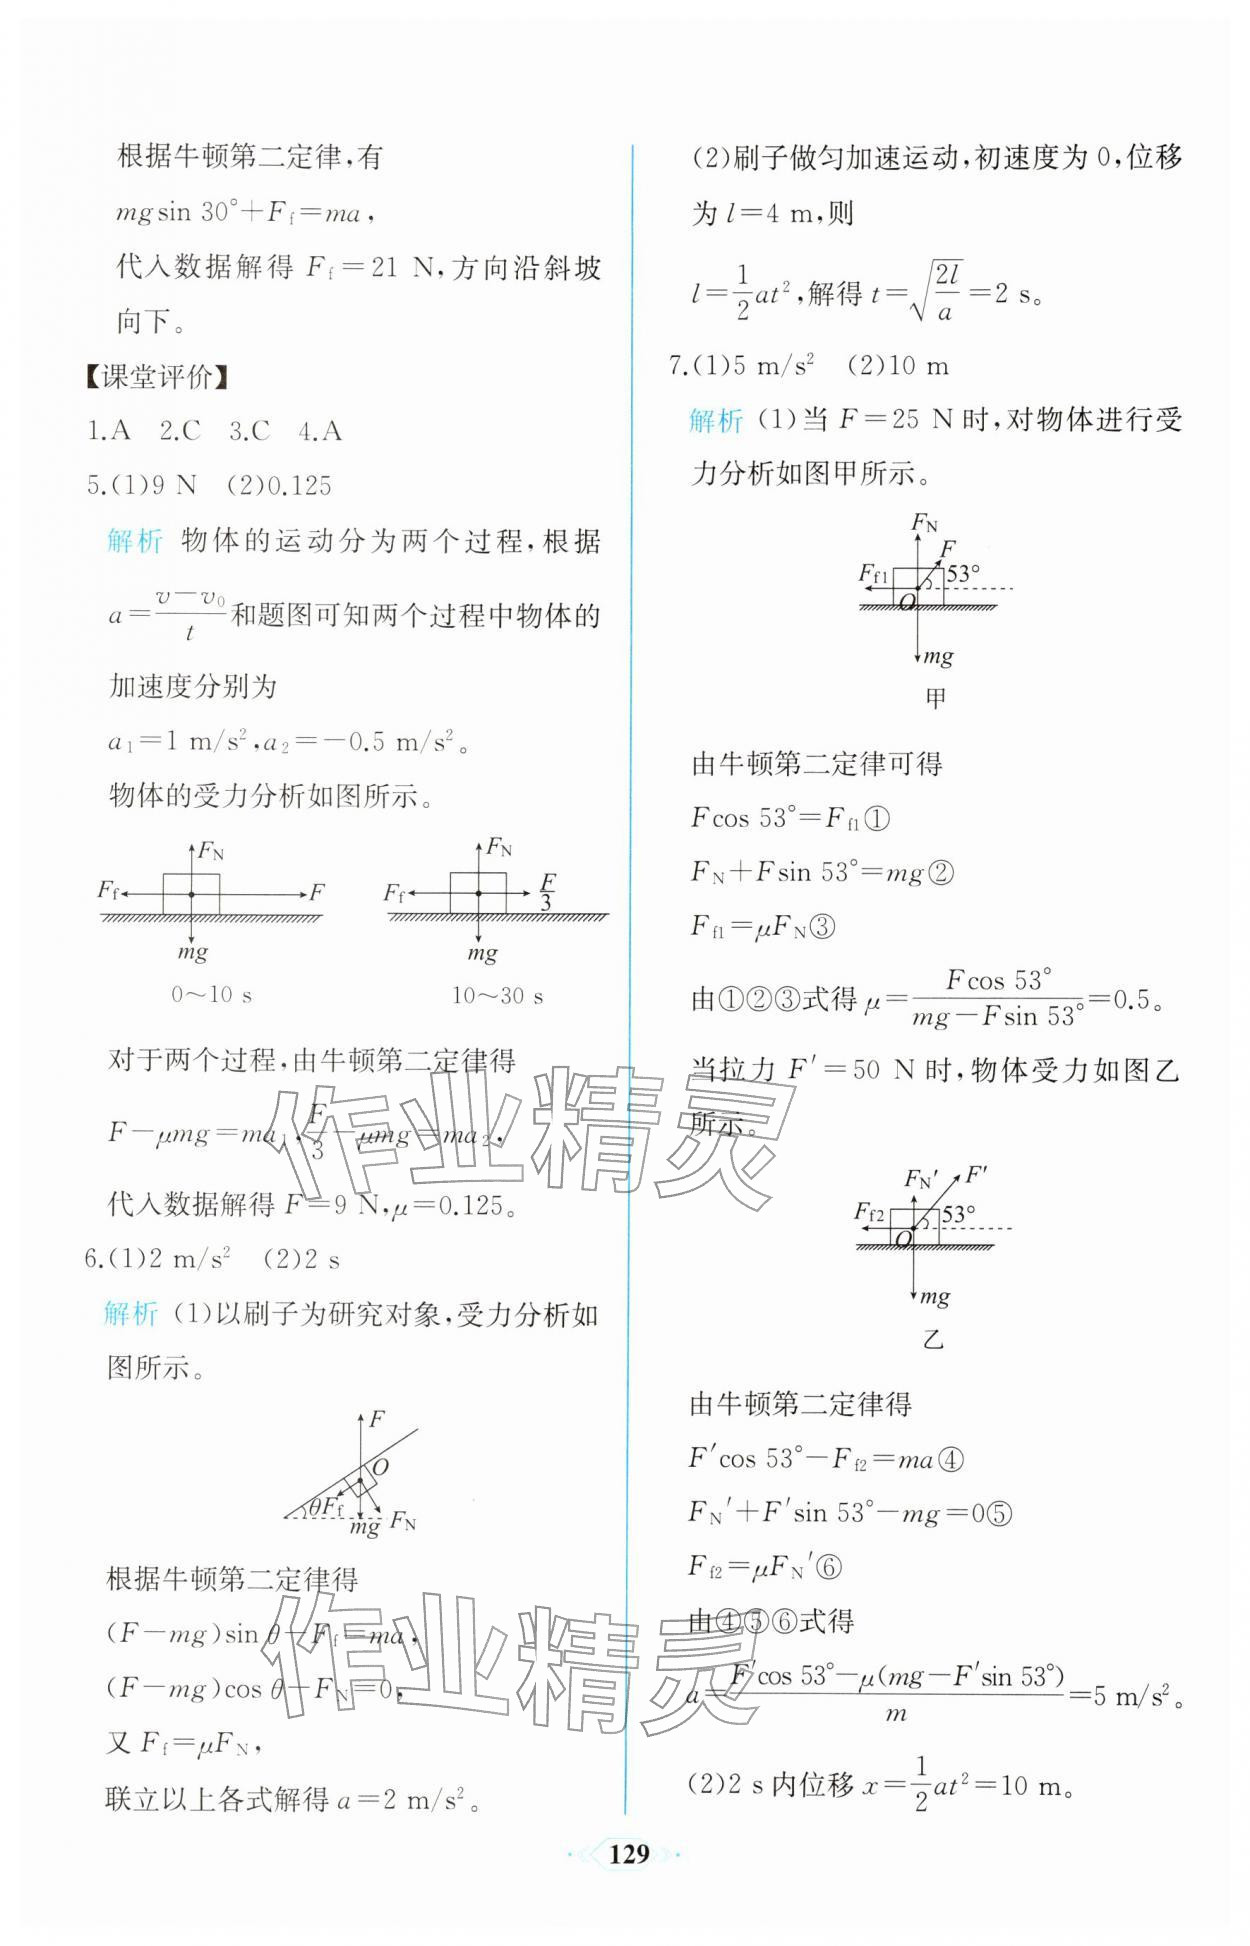 根据牛顿第二定律,有
mgsin 30°+Ff=ma,
代入数据解得 Ff=21 N,方向沿斜坡
向下。
【课堂评价】
1.A 2.C 3.C 4.A
5.(1)9 N (2)0.125
解析 物体的运动分为两个过程,根据
a=(v-v₀)/t和题图可知两个过程中物体的
加速度分别为
a₁=1 m/s²,a₂=-0.5 m/s²。
物体的受力分析如图所示。
FN
Ff F
mg
0~10 s
FN
Ff F/3
mg
10~30 s
对于两个过程,由牛顿第二定律得
F-μmg=ma₁,F/3-μmg=ma₂,
代入数据解得 F=9 N,μ=0.125。
6.(1)2 m/s² (2)2 s
解析 (1)以刷子为研究对象,受力分析如
图所示。
F
O
θ Ff
mg FN
根据牛顿第二定律得
(F-mg)sin θ-Ff=ma,
(F-mg)cos θ-FN=0,
又 Ff=μFN,
联立以上各式解得 a=2 m/s²。
(2)刷子做匀加速运动,初速度为 0,位移
为 l=4 m,则
l=1/2at²,解得 t=√(2l/a)=2 s。
7.(1)5 m/s² (2)10 m
解析 (1)当 F=25 N时,对物体进行受
力分析如图甲所示。
FN
F
Ff1 53°
O
mg
甲
由牛顿第二定律可得
Fcos 53°=Ff1①
FN+Fsin 53°=mg②
Ff1=μFN③
由①②③式得 μ=Fcos 53°/(mg-Fsin 53°)=0.5。
当拉力 F′=50 N时,物体受力如图乙
所示。
FN′ F′
Ff2 53°
O
mg
乙
由牛顿第二定律得
F′cos 53°-Ff2=ma④
FN′+F′sin 53°-mg=0⑤
Ff2=μFN′⑥
由④⑤⑥式得
a=(F′cos 53°-μ(mg-F′sin 53°))/m=5 m/s²。
(2)2 s内位移 x=1/2at²=10 m。
作业精灵
作业精灵
129